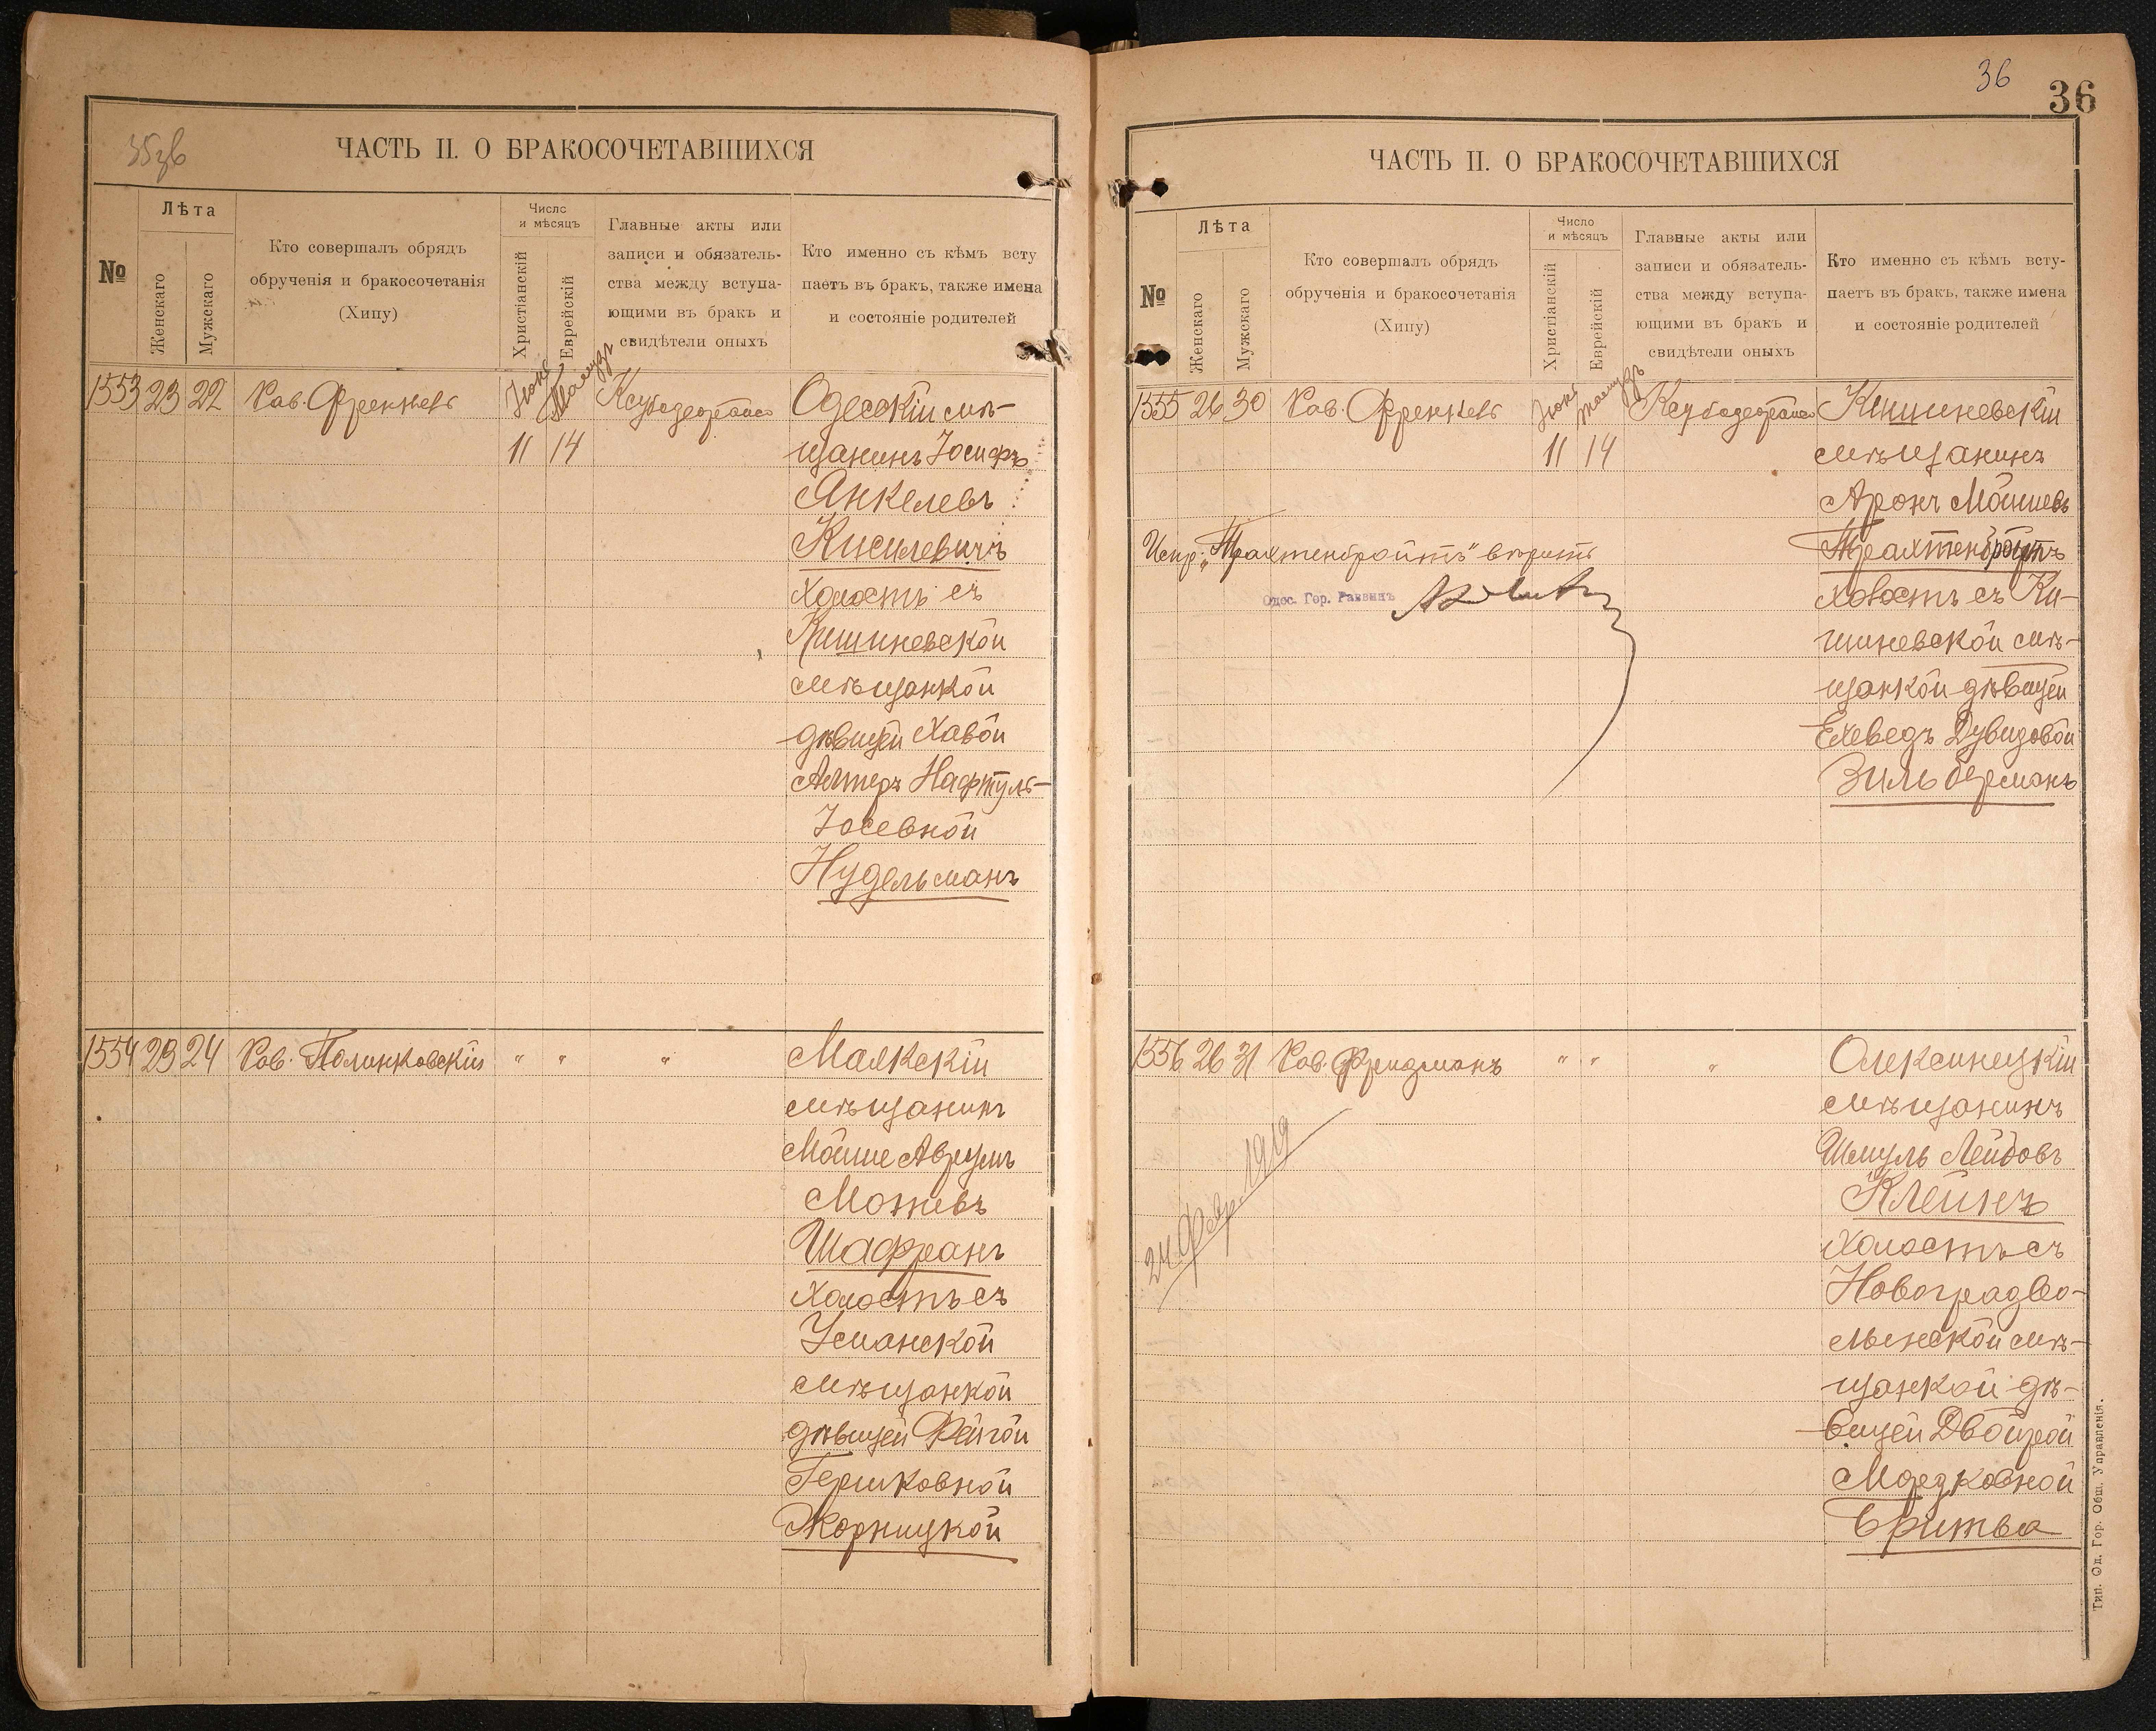 35зв
ЧАСТЬ II. О БРАКОСОЧЕТАВШИХСЯ
№
Лѣта
Женскаго
Мужскаго
Кто совершалъ обрядъ
обрученія и бракосочетанія
(Хипу)
Число
и мѣсяцъ
Христіанскій
Еврейскій
Главные акты или
записи и обязатель-
ства между вступа-
ющими въ бракъ и
свидѣтели оныхъ
Кто именно съ кѣмъ всту
паетъ въ бракъ, также имена
и состояніе родителей
1553 23 22 Рав. Френкель Іюнь Тамузъ
11 14
Одесскій мѣ-
щанинъ Іосифъ
Янкелевъ
Кисилевичъ
холостъ съ
Кишиневской
мѣщанкой
дѣвицей Хавой
Алтеръ Нафтуль-
Іосевной
Нудельманъ
1554 23 24 Рав. Полинковскій " " "
Маякскій
мѣщанинъ
Мойше Аврумъ
Мотевъ
Шафранъ
холостъ съ
Уманской
мѣщанкой
дѣвицей Фейгой
Гершковной
Жорницкой
36
36
ЧАСТЬ II. О БРАКОСОЧЕТАВШИХСЯ
№
Лѣта
Женскаго
Мужскаго
Кто совершалъ обрядъ
обрученія и бракосочетанія
(Хипу)
Число
и мѣсяцъ
Христіанскій
Еврейскій
Главные акты или
записи и обязатель-
ства между вступа-
ющими въ бракъ и
свидѣтели оныхъ
Кто именно съ кѣмъ всту-
паетъ въ бракъ, также имена
и состояніе родителей
1555 26 30 Рав. Френкель Іюнь Тамузъ
11 14
Кишиневскій
мѣщанинъ
Аронъ Мойшевъ
Трахтенбройтъ
холостъ съ Ки-
шиневской мѣ-
щанкой дѣвицей
Ехеведъ Дувидовой
Зильберманъ
Испр: „Трахтенбройтъ" вѣрить
Одес. Гор. Раввинъ
1556 26 31 Рав. Фридманъ " " "
Олексинецкій
мѣщанинъ
Шмуль Лейбовъ
Клейнъ
холостъ съ
Новоградво-
лынской мѣ-
щанкой дѣ-
вицей Двойрой
Мордковной
Бритва
24 Февр. 1919
Тип. Од. Гор. Общ. Управленія.